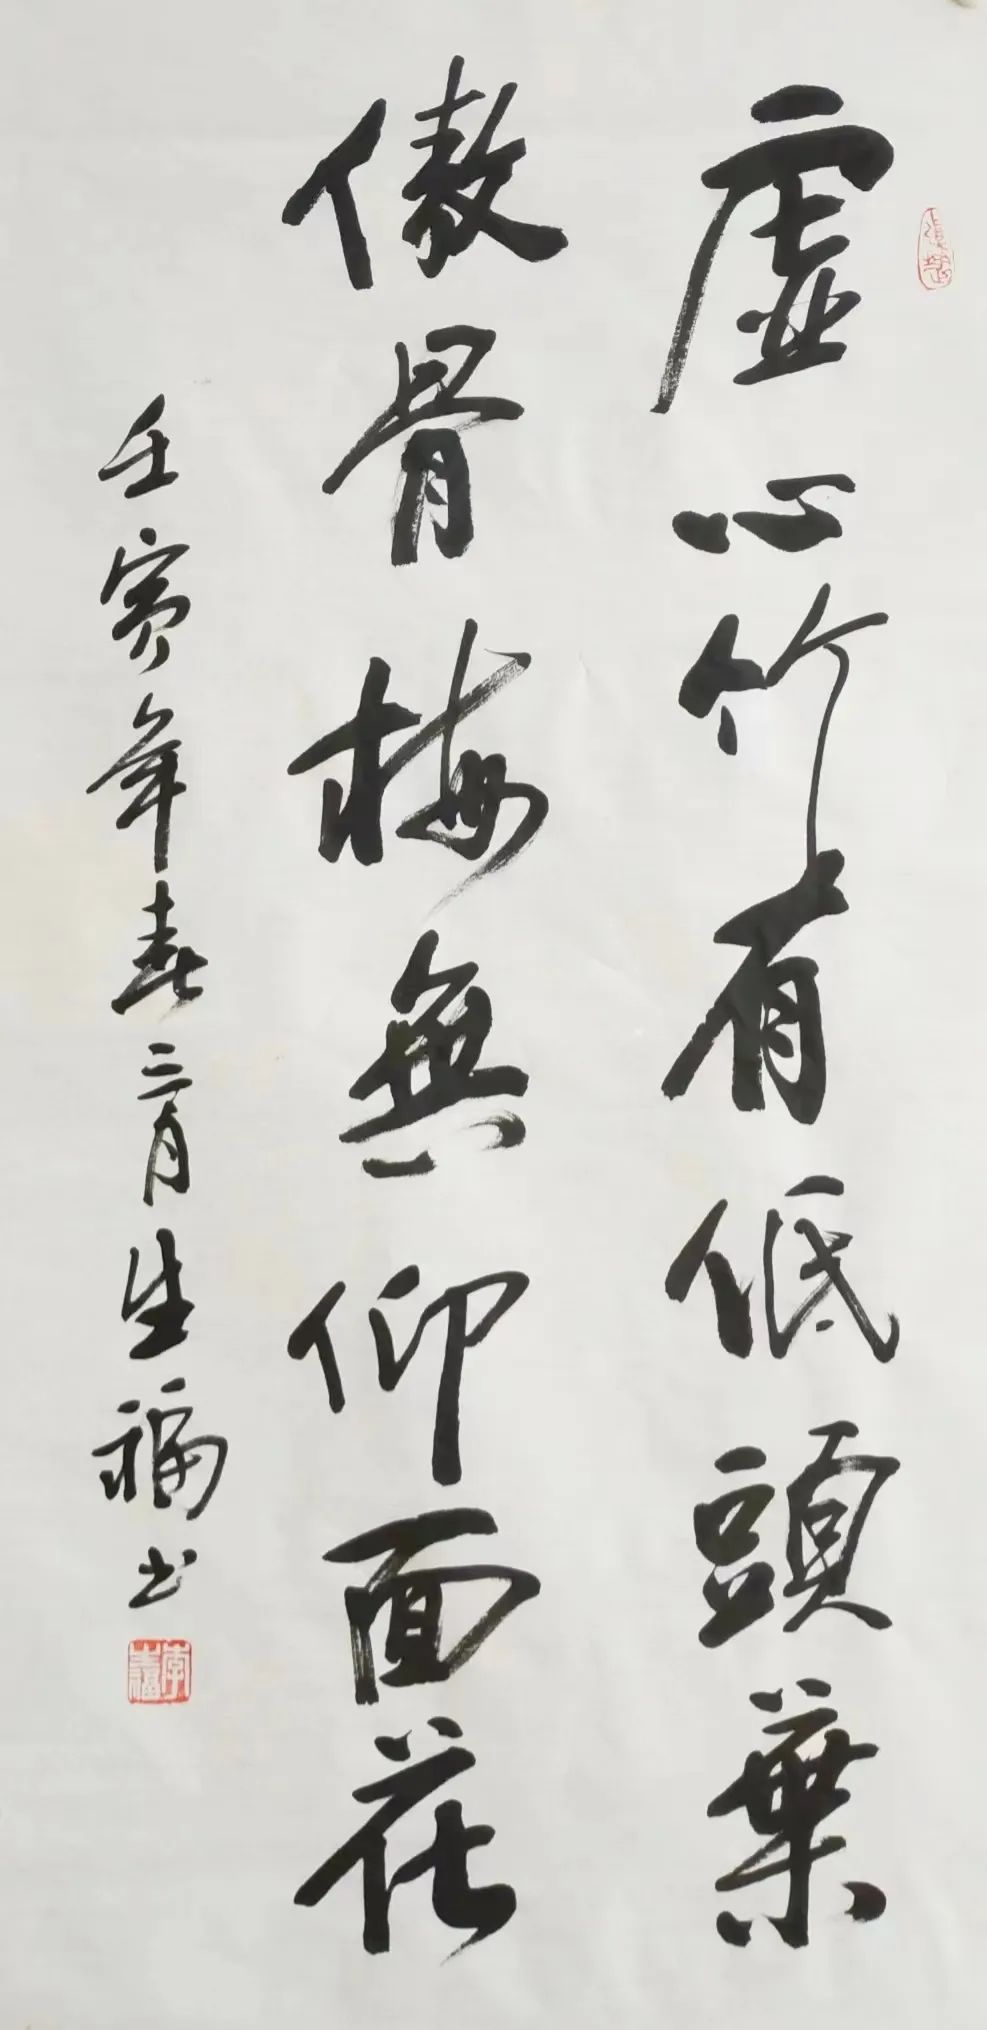 虛心竹有低頭葉
傲骨梅無仰面花
壬寅年春三月生福书